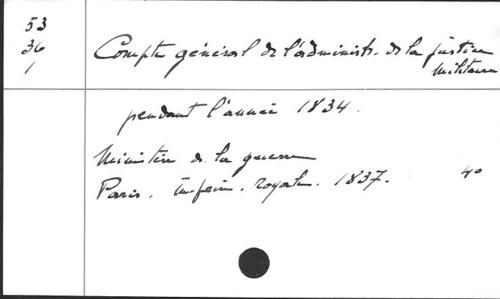 53
36
1
Compte général de l'administr. de la justice
militaire
pendant l'année 1834.
Ministère de la guerre
Paris. Imprim. royale. 1837. 4°